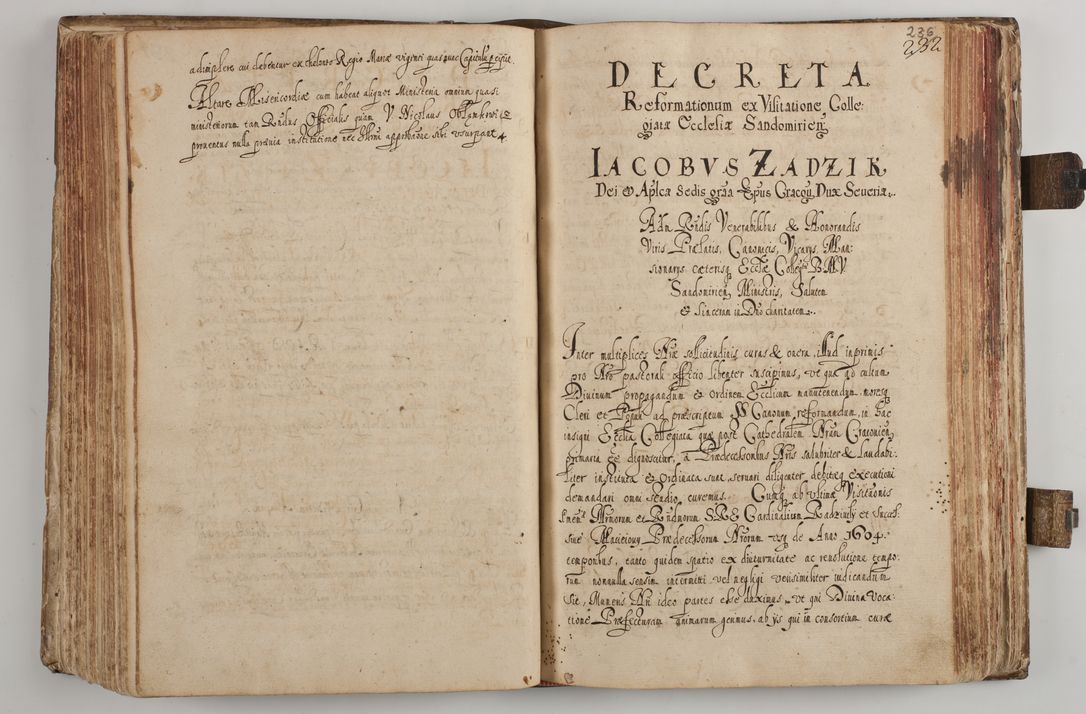 adimplere cui debentur ex theloneo Regio Marcæ viginti quas nunc Capitulũ ꝑcipit.
Altare Misericordiæ cum habeat aliquot Ministeria omnium quasi
ministeriorum tam Rñdus Officialis quam V. Nicolaus
prouentus nulla præuia institutione nec Illrmi approbãone sibi vsurpant
236
232
DECRETA
Reformationum ex Visitatione Colle:
giatæ Ecclesiæ Sandomirien̄
IACOBVS ZADZIK
Dei & Aplcæ Sedis grãa Epus Cracou̅ Dux Seueriæ.
Adm Rñdis Venerabilibus & Honorandis
Viris Prælatis, Canonicis, Vicarys, Man:
sionarys cæterisq Ecclæ Colleg B.M.V.
Sandomirien̄ Ministris, Salutem
& sinceram in Dño charitatem.
Inter multiplices Nræ sollicitudinis curas & onera, illud inprimis
pro Nro pastorali officio libenter suscipimus, vt quæ ad cultum
Diuinum propagandum & ordinem Eccĺicum manutenendum, moresq
Cleri et Populi ad præscriptum SS Canonum reformandum, in hac
insigni Ecclia Collegiata quæ post Cathedralem Nram Cracouien̄
primaria eẽ dignoscitur, a Prædecessoribus Nris salubriter & laudabi:
liter instituta & ordinata sunt, seruari diligenter debitæq executioni
demandari omni studio curemus. Cumq ab vltima Visitaõnis
Illrmorum et Rñdmorum S.R.E. Cardinalium Radziuily et succes:
siue Macieiouy Prædecessorum Nrorum vsq de Anno 1604.
temporibus, tanto quidem spatio ex diuturnitate ac reuolutione tempo:
rum nonnulla sensim intermitti vel negligi verisimiliter iudicandum
sit, Muneris Nri ideo partes esse duximus, vt qui Diuina voca:
tione Præfecturam animarum gerimus, ab ys qui in consortium curæ